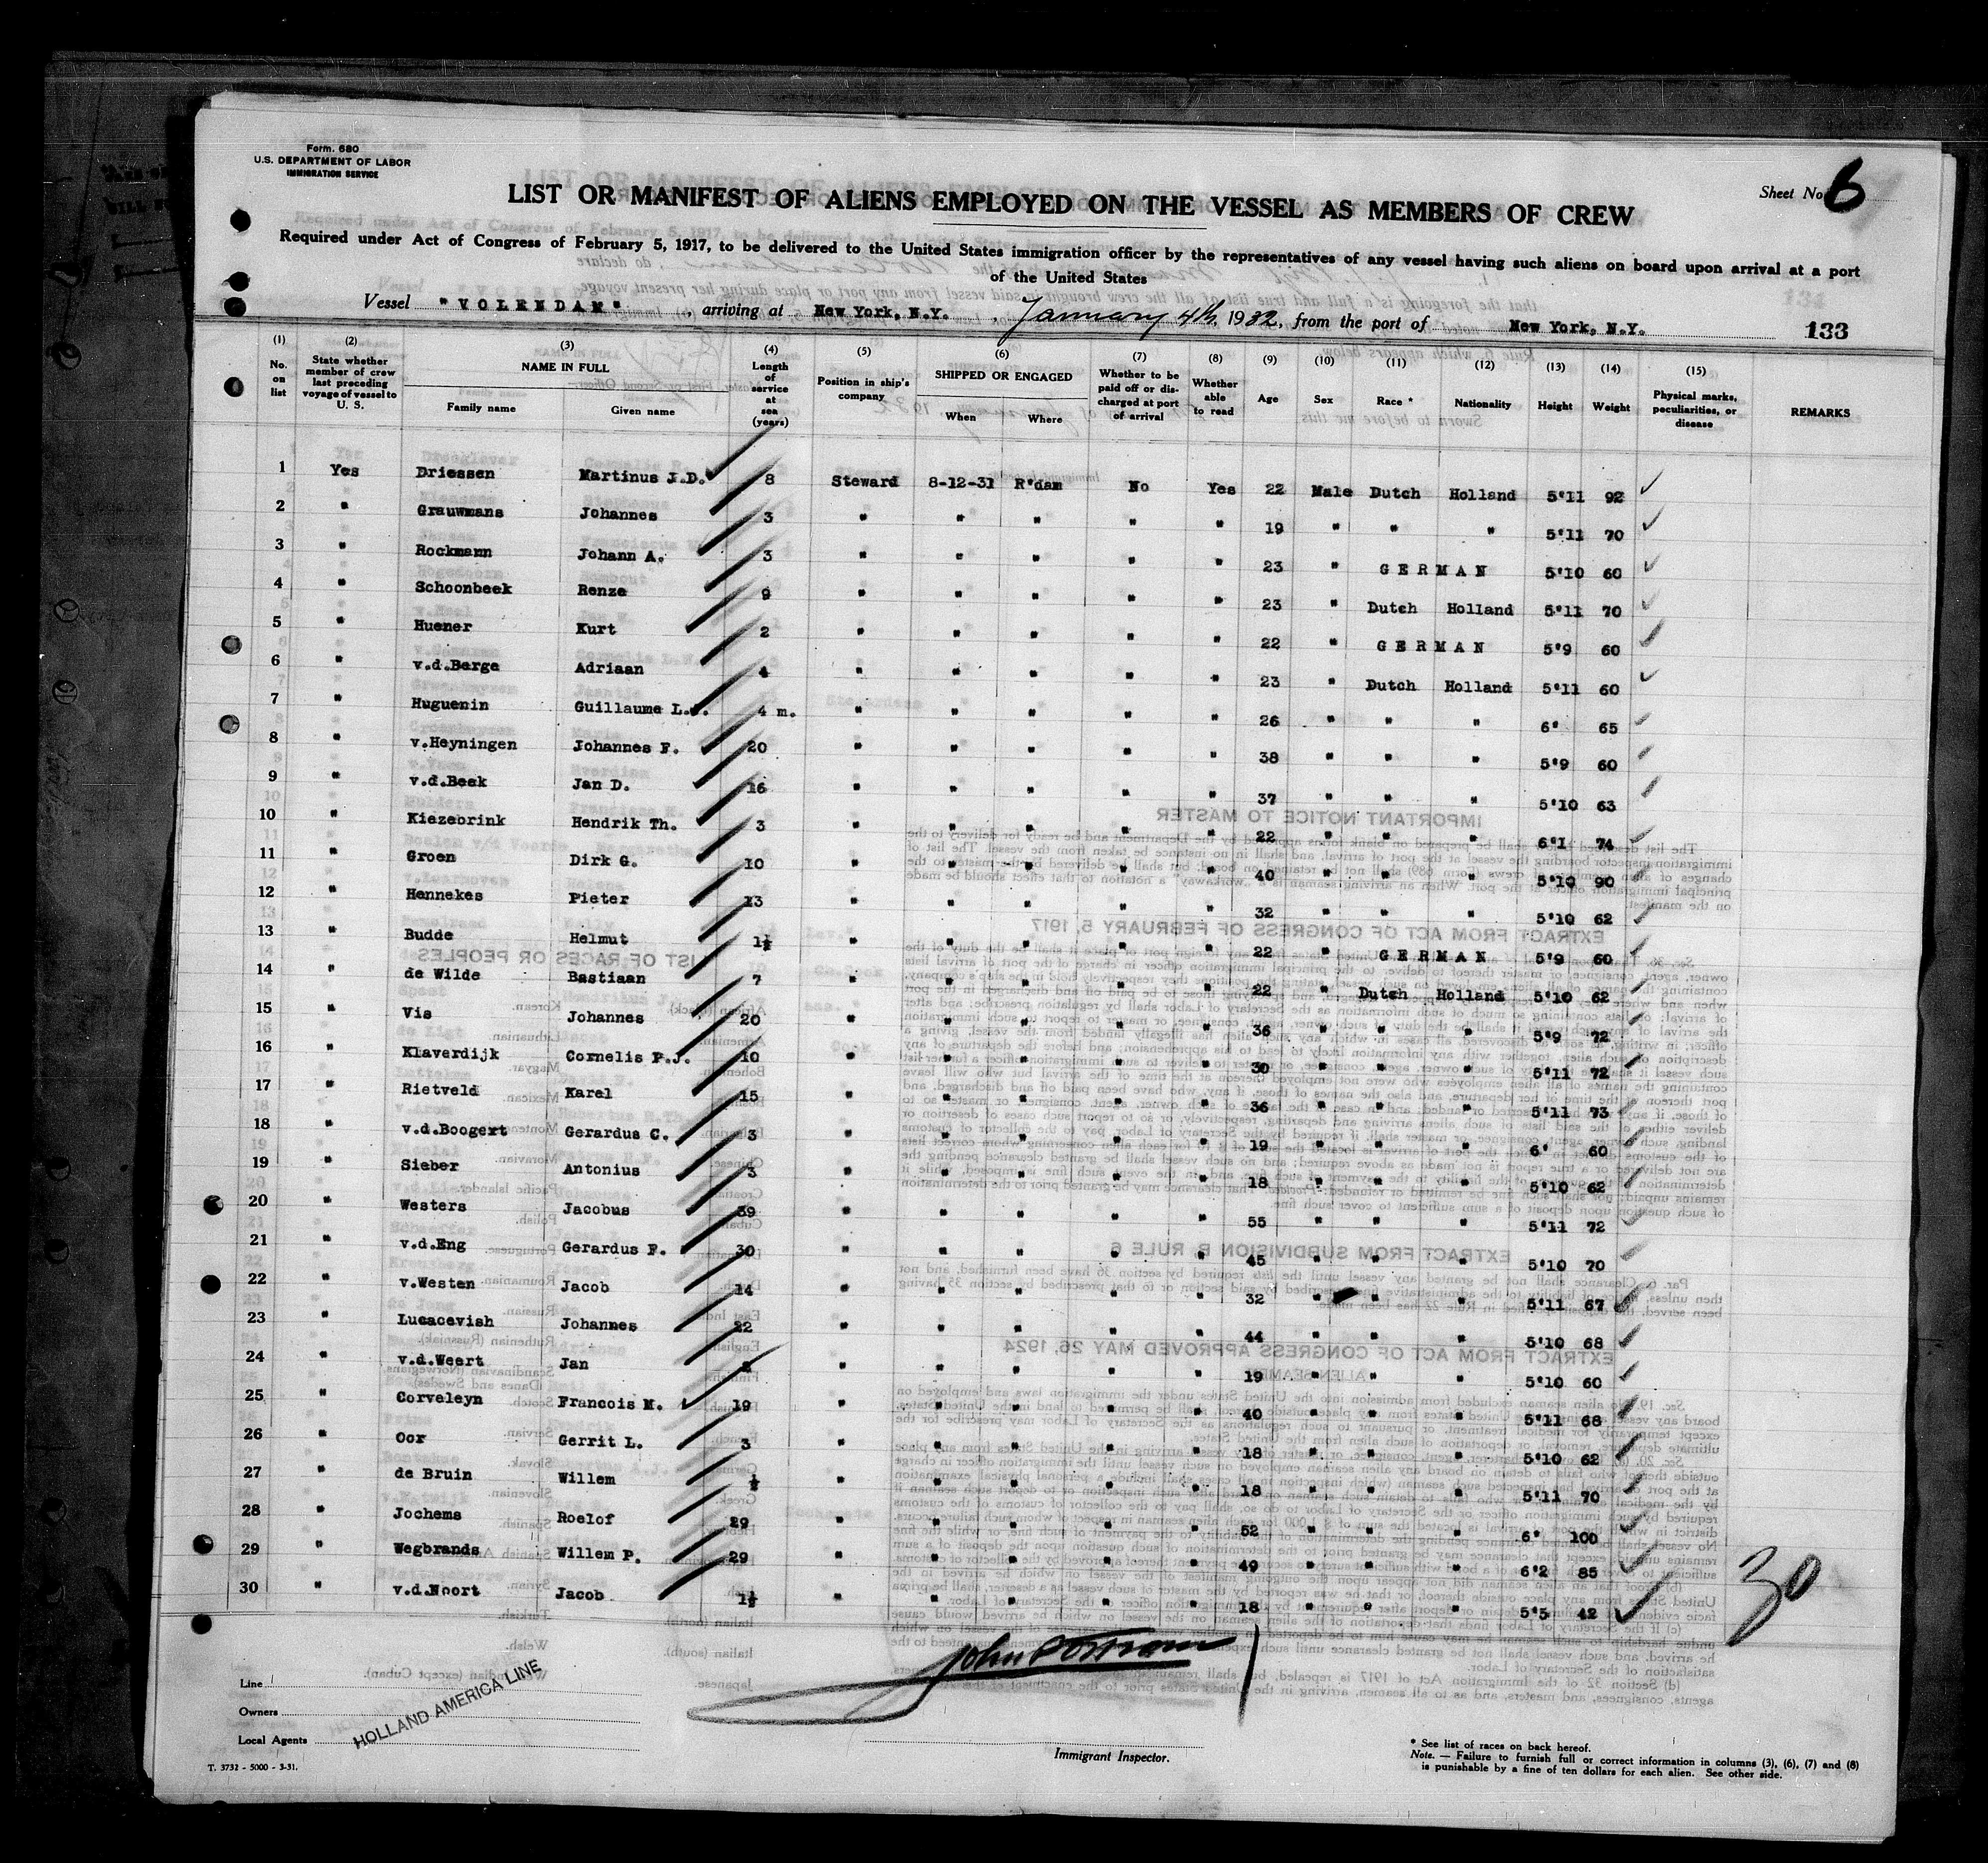 Form. 680
U.S. DEPARTMENT OF LABOR
IMMIGRATION SERVICE
Sheet No 6
LIST OR MANIFEST OF ALIENS EMPLOYED ON THE VESSEL AS MEMBERS OF CREW
Required under Act of Congress of February 5, 1917, to be delivered to the United States immigration officer by the representatives of any vessel having such aliens on board upon arrival at a port
of the United States
Vessel "VOLENDAM", arriving at New York, N.Y., January 4th, 1932, from the port of New York, N.Y. 133
(1) No. on list (2) State whether member of crew last preceding voyage of vessel to U. S. (3) NAME IN FULL Family name Given name (4) Length of service at sea (years) (5) Position in ship's company (6) SHIPPED OR ENGAGED When Where (7) Whether to be paid off or discharged at port of arrival (8) Whether able to read (9) Age (10) Sex (11) Race * (12) Nationality (13) Height (14) Weight (15) Physical marks, peculiarities, or disease REMARKS
1 Yes Driessen Martinus J.D. 8 Steward 8-12-31 R'dam No Yes 22 Male Dutch Holland 5'11 92
2 " Grauwmans Johannes 3 " " " " " 19 " " " 5'11 70
3 " Rockmann Johann A. 3 " " " " " 23 " GERMAN 5'10 60
4 " Schoonbeek Renze 9 " " " " " 23 " Dutch Holland 5'11 70
5 " Huener Kurt 2 " " " " " 22 " GERMAN 5'9 60
6 " v.d.Berge Adriaan 4 " " " " " 23 " Dutch Holland 5'11 60
7 " Huguenin Guillaume L. 4 m. " " " " " 26 " " " 6' 65
8 " v.Heyningen Johannes F. 20 " " " " " 38 " " " 5'9 60
9 " v.d.Beek Jan D. 16 " " " " " 37 " " " 5'10 63
10 " Kiezebrink Hendrik Th. 3 " " " " " 22 " " " 6'1 74
11 " Groen Dirk G. 10 " " " " " 40 " " " 5'10 90
12 " Hennekes Pieter 13 " " " " " 32 " " " 5'10 62
13 " Budde Helmut 1½ " " " " " 22 " GERMAN 5'9 60
14 " de Wilde Bastiaan 7 " " " " " 22 " Dutch Holland 5'10 62
15 " Vis Johannes 20 " " " " " 36 " " " 5'9 72
16 " Klaverdijk Cornelis P.J. 10 " " " " " 30 " " " 5'11 72
17 " Rietveld Karel 15 " " " " " 36 " " " 5'11 73
18 " v.d.Boogert Gerardus C. 3 " " " " " 19 " " " 6' 60
19 " Sieber Antonius 3 " " " " " 18 " " " 5'10 62
20 " Westers Jacobus 39 " " " " " 55 " " " 5'11 72
21 " v.d.Eng Gerardus F. 30 " " " " " 45 " " " 5'10 70
22 " v.Westen Jacob 14 " " " " " 32 " " " 5'11 67
23 " Lucacevish Johannes 22 " " " " " 44 " " " 5'10 68
24 " v.d.Weert Jan " " " " " 19 " " " 5'10 60
25 " Corveleyn Francois M. 19 " " " " " 40 " " " 5'11 68
26 " Oor Gerrit L. 3 " " " " " 18 " " " 5'10 62
27 " de Bruin Willem ½ " " " " " 18 " " " 5'11 70
28 " Jochems Roelof 29 " " " " " 52 " " " 6' 100
29 " Wegbrands Willem P. 29 " " " " " 49 " " " 6'2 85
30 " v.d.Noort Jacob 1½ " " " " " 18 " " " 5'5 42
30
Line
Owners
Local Agents
HOLLAND AMERICA LINE
Immigrant Inspector.
T. 3732 - 5000 - 3-31.
* See list of races on back hereof.
Note. — Failure to furnish full or correct information in columns (3), (6), (7) and (8)
is punishable by a fine of ten dollars for each alien. See other side.